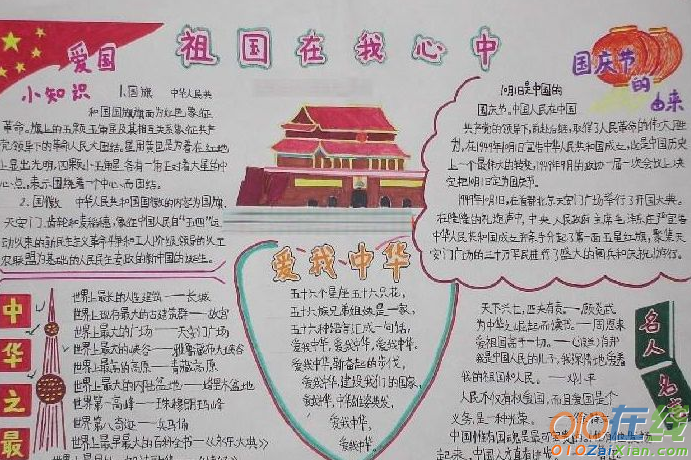 祖国在我心中
爱国
小知识
1.国旗 中华人民共
和国国旗旗面为红色,象征
革命。旗上的五颗五角星及其相互关系象征共产
党领导下的革命人民大团结。星用黄色是为着在红地
上显出光明,四颗小五角星各有一角正对着大星的中
心点,表示围绕着一个中心而团结。
2.国徽 中华人民共和国国徽的内容为国旗、
天安门、齿轮和麦稻穗,象征中国人民自“五四”运
动以来的新民主主义革命斗争和工人阶级领导的以工
农联盟为基础的人民民主专政的新中国的诞生。
国庆节
的
由来
10月1日是中国的
国庆节。中国人民在中国
共产党的领导下,前赴后继,取得了人民革命的伟大胜
利,在1949年10月1日宣告中华人民共和国成立,这是中国历史
上一个最伟大的转变,1949年9月的政协一届一次会议上决
定把10月1日定为国庆节。
1949年10月1日,在首都北京天安门广场举行了开国大典。
在隆隆的礼炮声中,中央人民政府主席毛泽东庄严宣告
中华人民共和国成立并亲手升起了第一面五星红旗。聚集天
安门广场的三十万军民进行了盛大的阅兵和庆祝游行。
中华之最
世界上最长的人造建筑——长城
世界上现存最大的古建筑群——故宫
世界上最大的广场——天安门广场
世界上最大的峡谷——雅鲁藏布大峡谷
世界上最高的高原——青藏高原
世界上最大的内陆盆地——塔里木盆地
世界第一高峰——珠穆朗玛峰
世界第八奇迹——兵马俑
世界上最早最大的百科全书——《永乐大典》
爱我中华
五十六个星座五十六只花,
五十六族兄弟姐妹是一家,
五十六种语言汇成一句话,
爱我中华,爱我中华,爱我中华。
爱我中华,健儿奋起的步伐,
爱我中华,建设我们的国家,
爱我中华,
爱我中华,
爱我中华。
天下兴亡,匹夫有责。——顾炎武
为中华之崛起而读书。——周恩来
爱祖国高于一切。——
我是中国人民的儿子,我深情地爱着
我的祖国和人民。——邓小平
人民不仅有权爱国,而且爱国是个
义务,是一种光荣。
名人名言
010在线
010ZaiXian.com